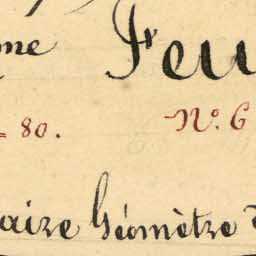 me Feu
80. N° 6
aire Géomètre